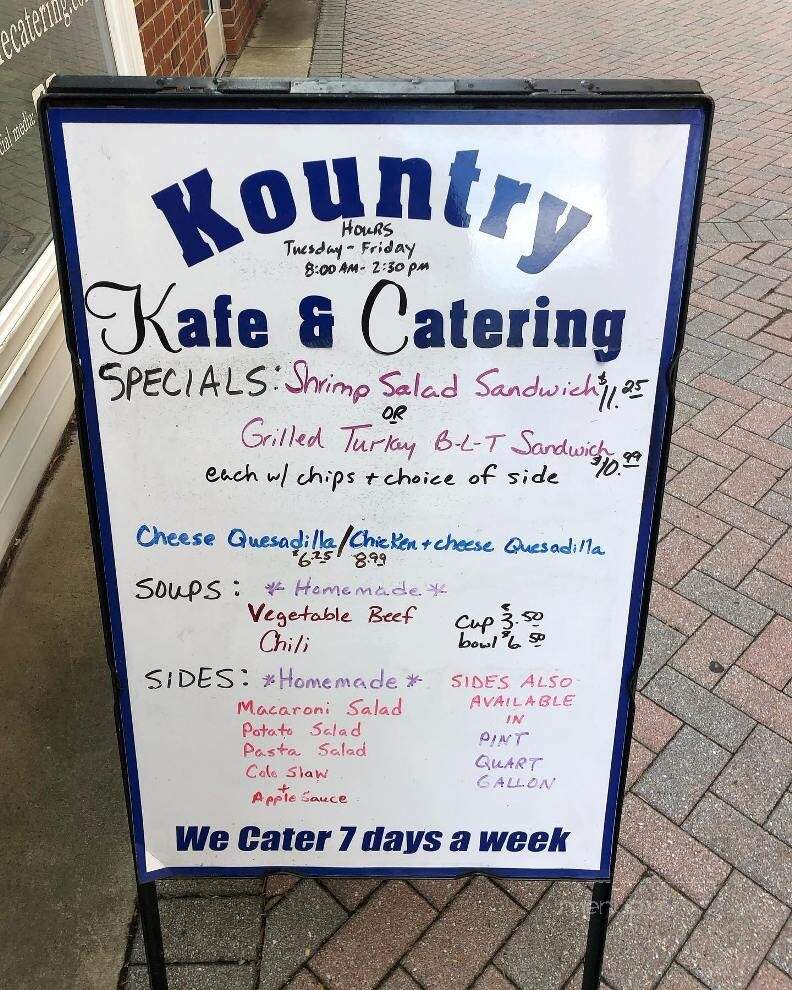 ecatering.co
cial media
Kountry
HOURS
Tuesday - Friday
8:00 AM - 2:30 PM
Kafe & Catering
SPECIALS: Shrimp Salad Sandwich $11.25
OR
Grilled Turkey B-L-T Sandwich $10.99
each w/ chips + choice of side
Cheese Quesadilla / Chicken + cheese Quesadilla
$6.25 8.99
SOUPS: * Homemade *
Vegetable Beef
Chili
Cup $3.50
bowl $6.50
SIDES: * Homemade *
Macaroni Salad
Potato Salad
Pasta Salad
Cole Slaw
+
Apple Sauce
SIDES ALSO
AVAILABLE
IN
PINT
QUART
GALLON
We Cater 7 days a week